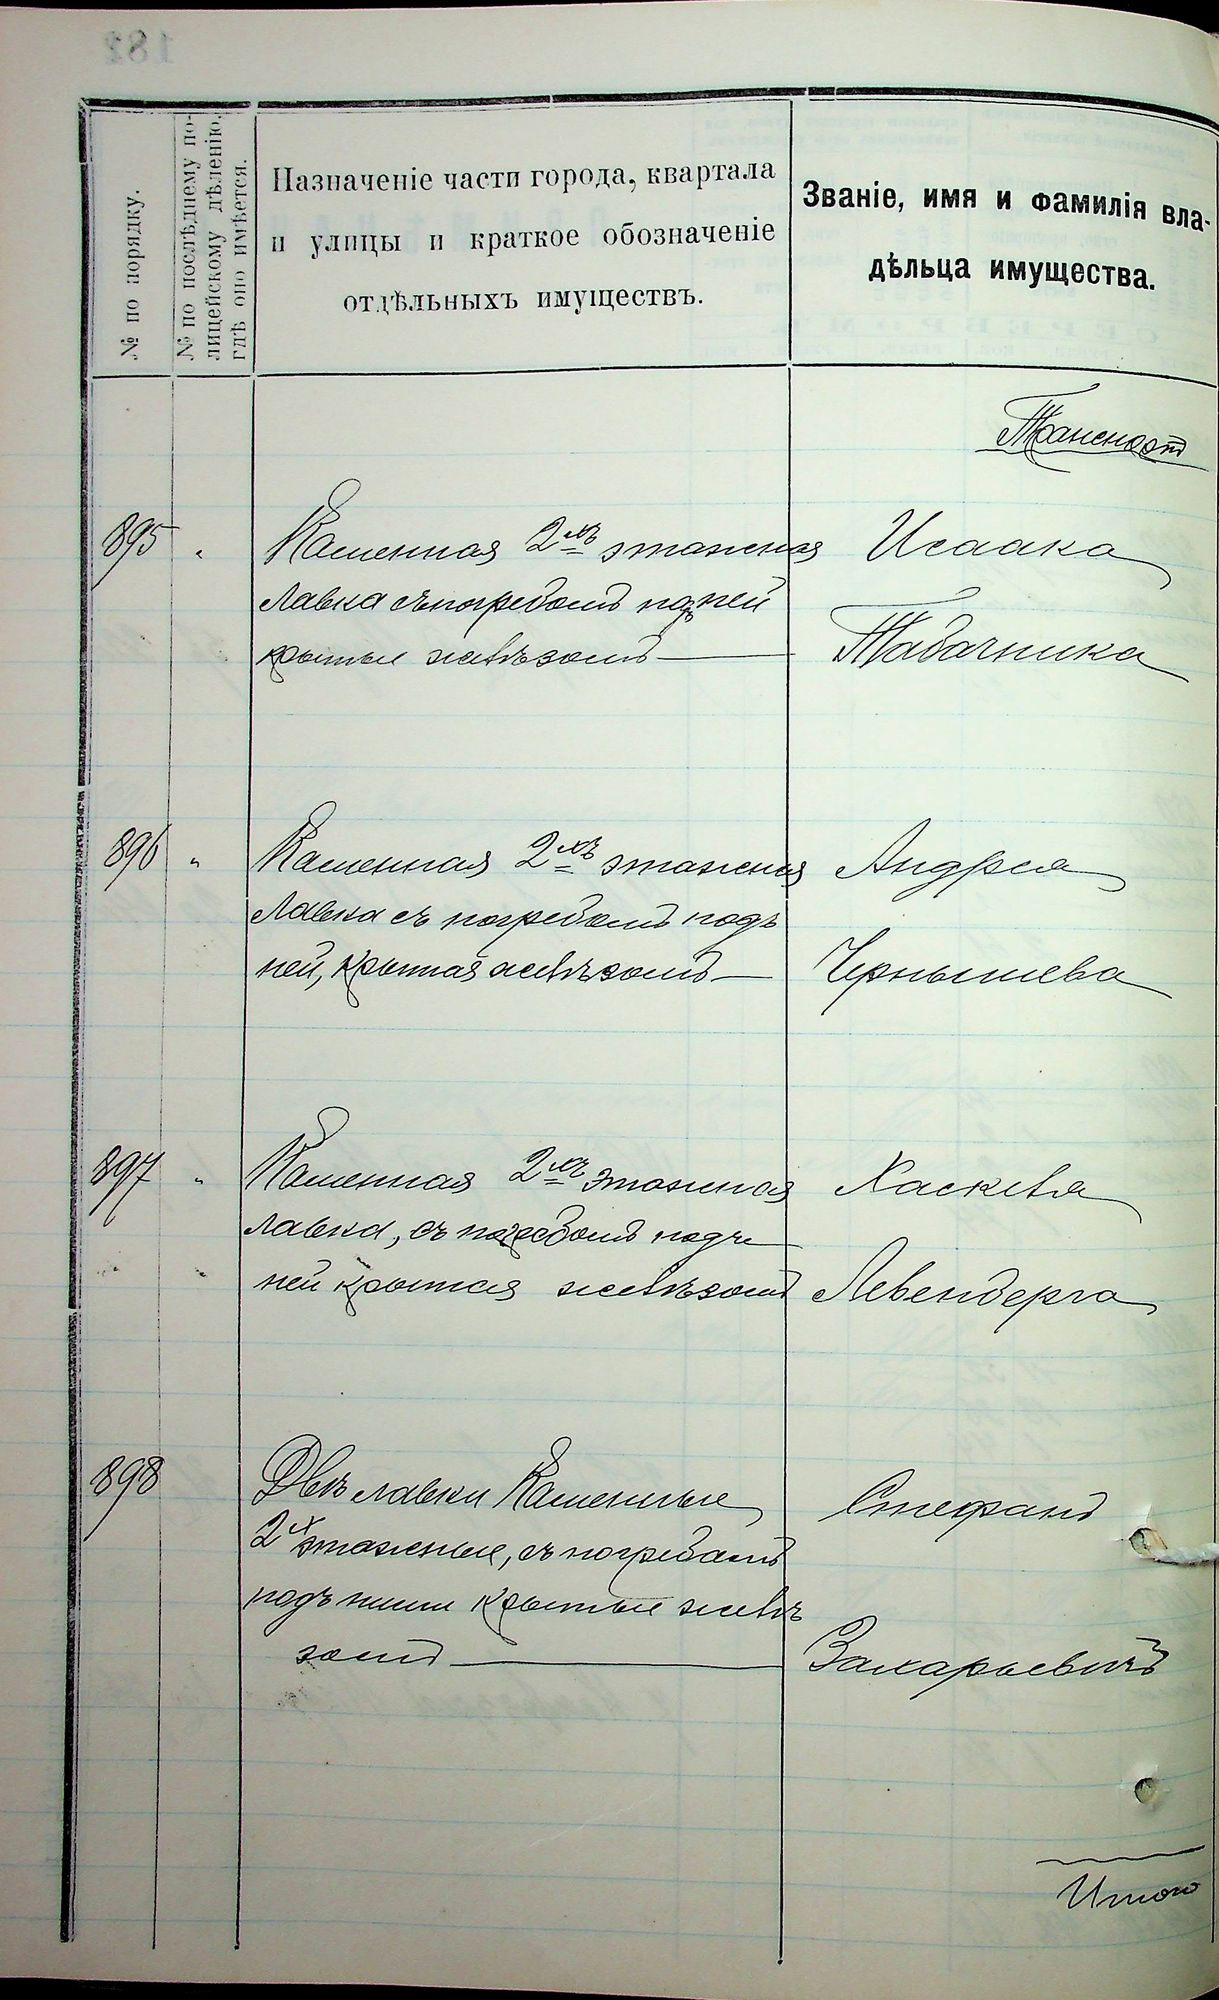 182
№ по порядку.
№ по послѣднему по-
лицейскому дѣленію,
гдѣ оно имѣется.
Назначеніе части города, квартала
и улицы и краткое обозначеніе
отдѣльныхъ имуществъ.
Званіе, имя и фамилія вла-
дѣльца имущества.
Транспортъ
895 " Каменная 2хъ этажная Исаака
лавка съ погребомъ подъ ней
крытые желѣзомъ Табачника
896 " Каменная 2хъ этажная Андрея
лавка съ погребомъ подъ
ней, крытая желѣзомъ Чернышева
897 " Каменная 2хъ этажная Хаскеля
лавка, съ погребомъ подъ
ней крытая желѣзомъ Левенберга
898 Двѣ лавки Каменные Стефанъ
2х этажные, съ погребомъ
подъ ними крытые желѣ
зомъ Захарьевичъ
Итого